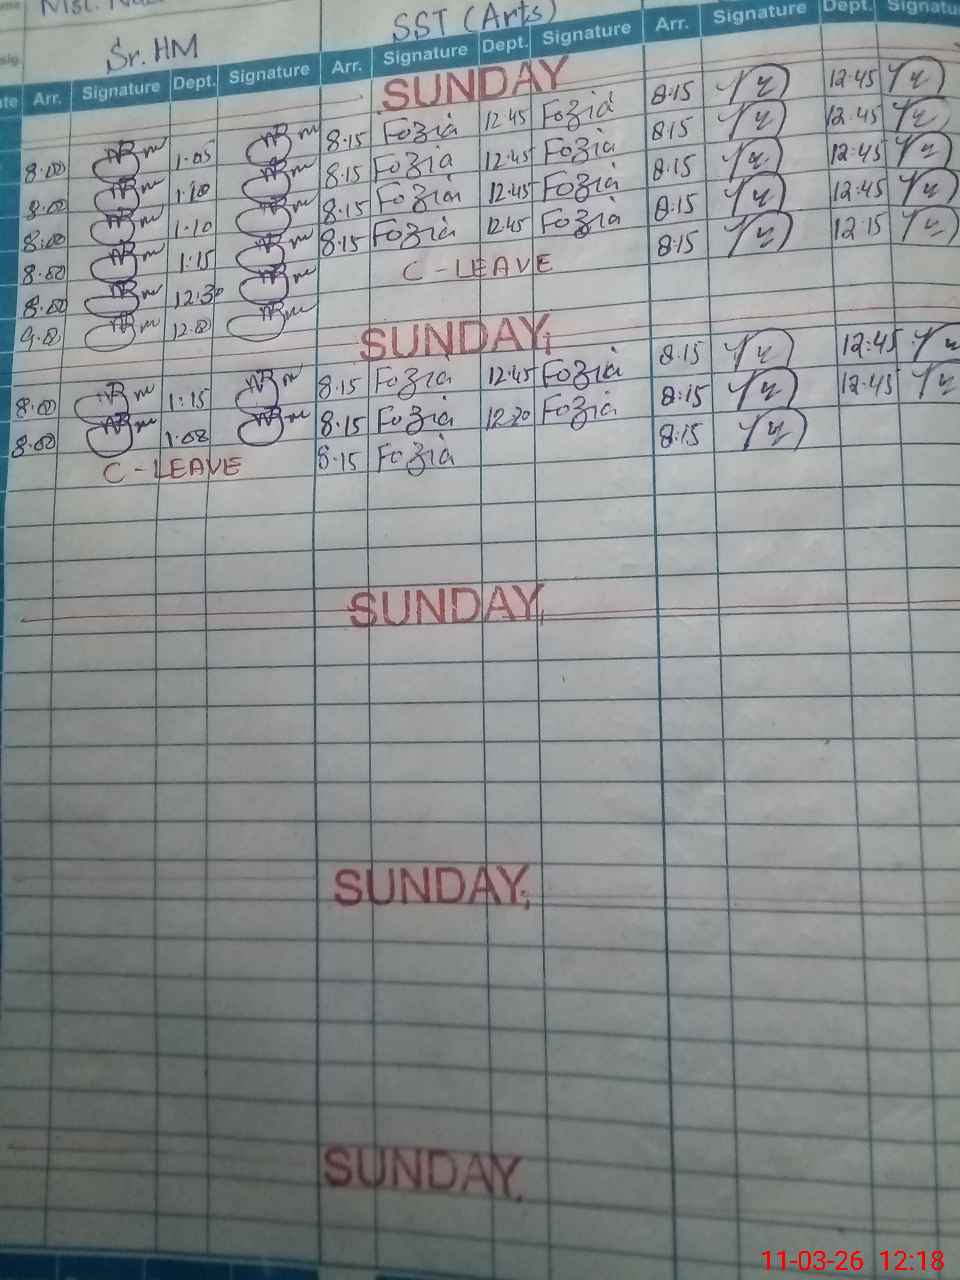 Sr. HM SST (Arts)
Arr. Signature Dept. Signature Arr. Signature Dept. Signature Arr. Signature Dept. Signature
SUNDAY
8.00 1.05 8.15 Fozia 12.45 Fozia 8.15 12.45
8.00 1.10 8.15 Fozia 12.45 Fozia 8.15 12.45
8.00 1.10 8.15 Fozia 12.45 Fozia 8.15 12.45
8.00 1.15 8.15 Fozia 12.45 Fozia 8.15 12.45
8.00 12.30 C - LEAVE 8.15 12.15
9.00 12.0
SUNDAY
8.00 1.15 8.15 Fozia 12.45 Fozia 8.15 12.45
8.00 1.08 8.15 Fozia 12.20 Fozia 8.15 12.45
C - LEAVE 8.15 Fozia 8.15
SUNDAY
SUNDAY
SUNDAY
11-03-26 12:18